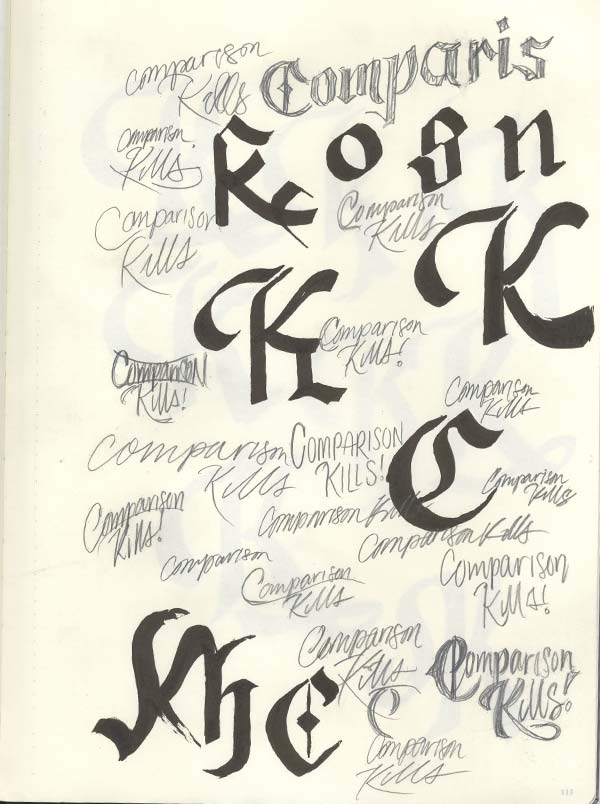 Comparison
Kills
Comparis
Comparison
Kills
K o s n
Comparison
Kills
Comparison
Kills
K
K
Comparison
Kills!
Comparison
Kills!
Comparison
Kills
Comparison
Kills
COMPARISON
KILLS!
C
Comparison
Kills
Comparison
Kills!
Comparison Kills
Comparison Kills
Comparison
Comparison
Kills
Comparison
Kills!
Comparison
Kills
C
Comparison
Kills!
K h C
Comparison
Kills